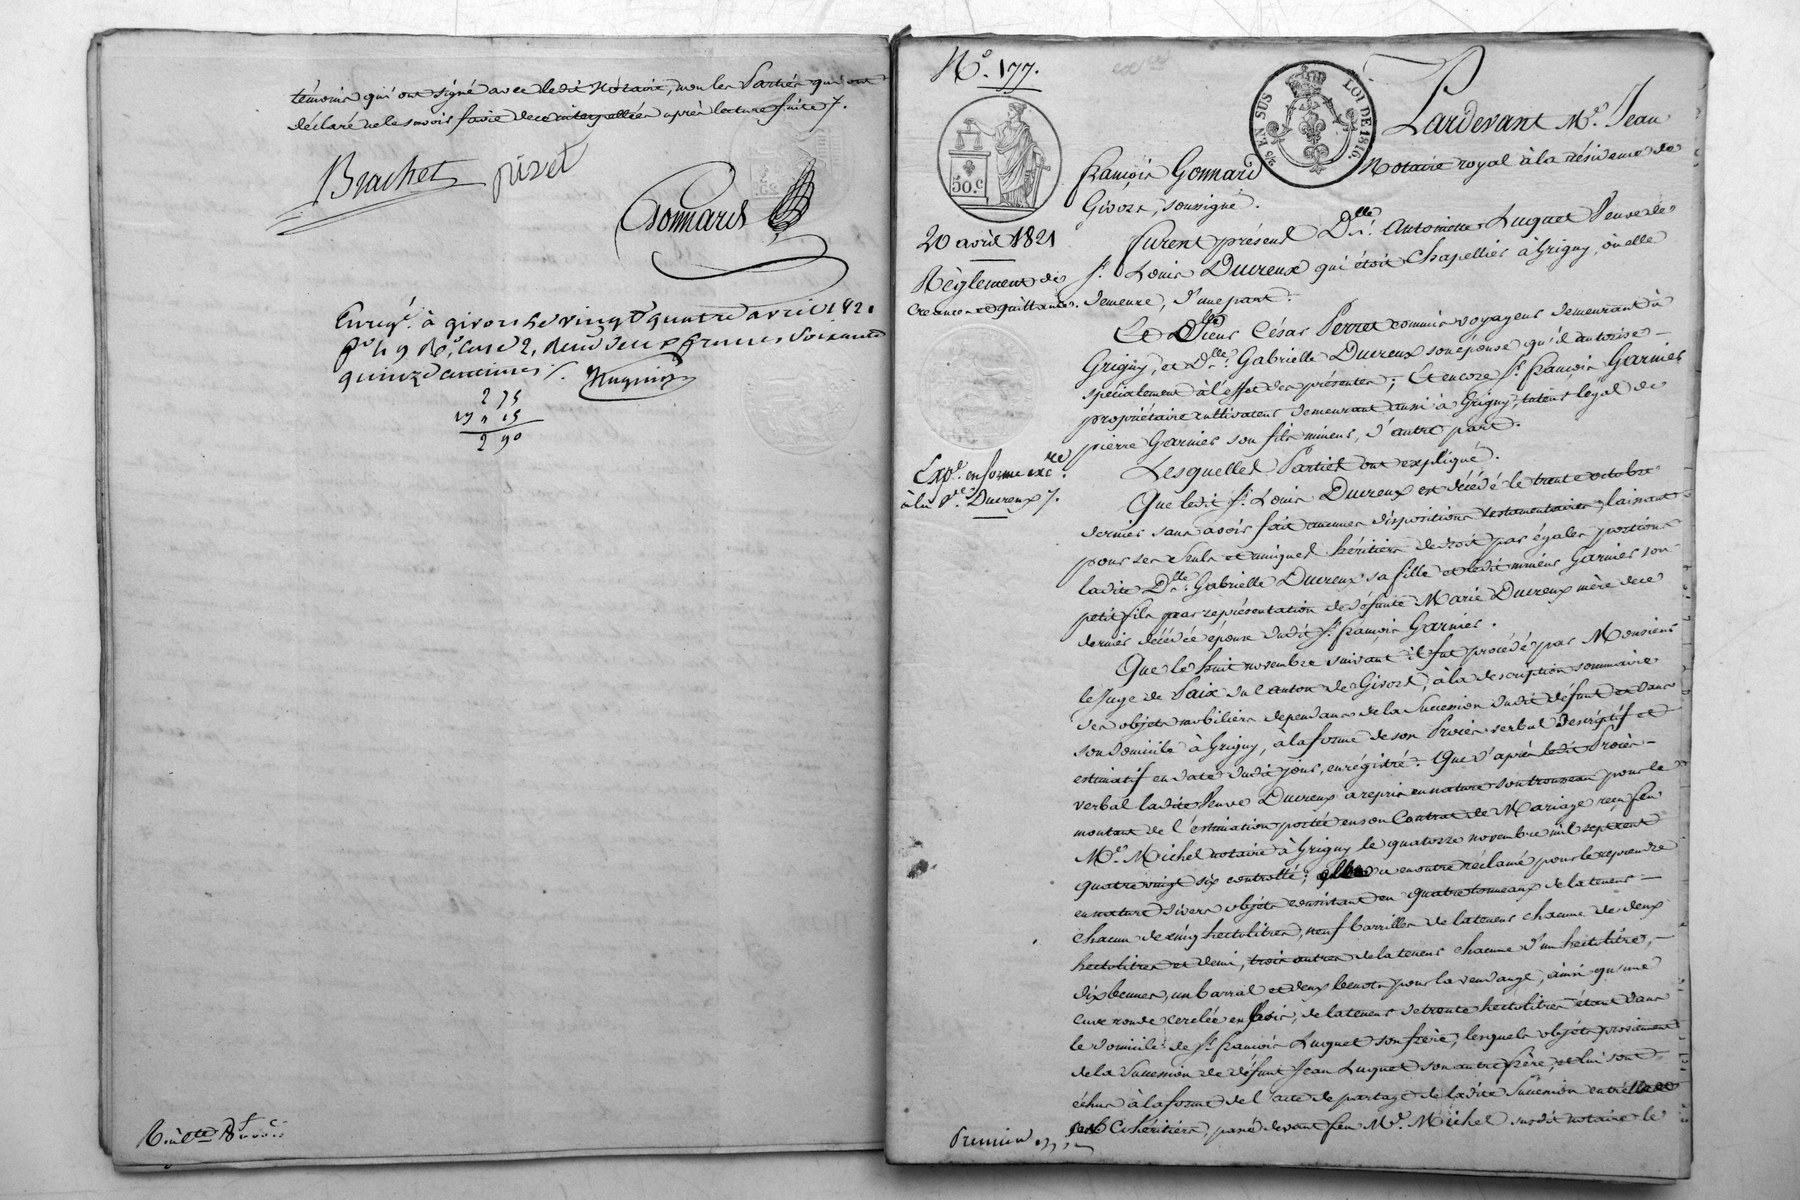 témoins qui ont signé avec ledit Notaire, non les Parties qui ont
déclaré ne le savoir faire de ce interpellées après lecture faite ⁊.
Brachet pizet
Gonnard
Enreg.é à givors le vingt quatre avril 1821
f.o 49 R.o Case 2, Reçu deux francs soixante
quinze centimes ⁊.
2 75
27
2 90
N.o 177.
25 EN SUS
LOI DE 1816
50.c
Pardevant M.e Jean
françois Gonnard Notaire royal à la résidence de
Givors, soussigné.
20 avril 1821
Règlement de
Créance et quittance.
furent présents D.lle Antoinette Luquet Veuve de
S.r Louis Ducreux qui étoit Chapellier à Grigny, où elle
demeure, d'une part.
Et Sieur César Perret commis voyageur demeurant à
Grigny, et D.lle Gabrielle Ducreux son épouse qu'il autorise
spécialement à l'effet des présentes; Et encore S.r françois Garnier
propriétaire cultivateur demeurant aussi à Grigny, tuteur légal de
pierre Garnier son fils mineur, d'autre part.
Exp.é en forme exe.re
à la V.ve Ducreux ⁊.
Lesquelles Parties ont expliqué.
Que ledit S.r Louis Ducreux est décédé le trente octobre
dernier sans avoir fait aucunes dispositions testamentaires, laissant
pour ses seuls et uniques héritiers de droit par égales portions
ladite D.lle Gabrielle Ducreux sa fille et ledit mineur Garnier son
petit fils par représentation de défunte Marie Ducreux mère de ce
dernier décédée épouse dudit S.r françois Garnier.
Que le huit novembre suivant il fut procédé par Monsieur
le Juge de Paix du Canton de Givors, à la description sommaire
des objets mobiliers dépendans de la Succession dudit défunt et dans
son domicile à Grigny, à la forme de son Procès verbal descriptif et
estimatif en date dudit jour, enrégistré. Que d'après ledit Procès-
verbal ladite Veuve Ducreux a repris en nature son trousseau pour le
montant de l'estimation portée en son Contrat de Mariage reçu feu
M.e Michel notaire à Grigny le quatorze novembre mil sept cent
quatre vingt six controllé; elle a en outre réclamé pour le reprendre
en nature divers objets consistant en quatre tonneaux de la teneur
chacun de cinq hectolitres, neuf barrilles de la teneur chacune de deux
hectolitres et demi, trois autres de la teneur chacune d'un hectolitre,
dix bennes, un barral et deux benots pour la vendange, ainsi qu'une
cuve ronde cerclée en bois, de la teneur de trente hectolitres étant dans
le domicile de S.r françois Luquet son frère, lesquels objets provienent
de la Succession de défunt Jean Luquet son autre frère, et lui sont
échus à la forme de l'acte de partage de ladite Succession entre
ses Cohéritiers, passé devant feu M.e Michel susdit notaire le
Premier